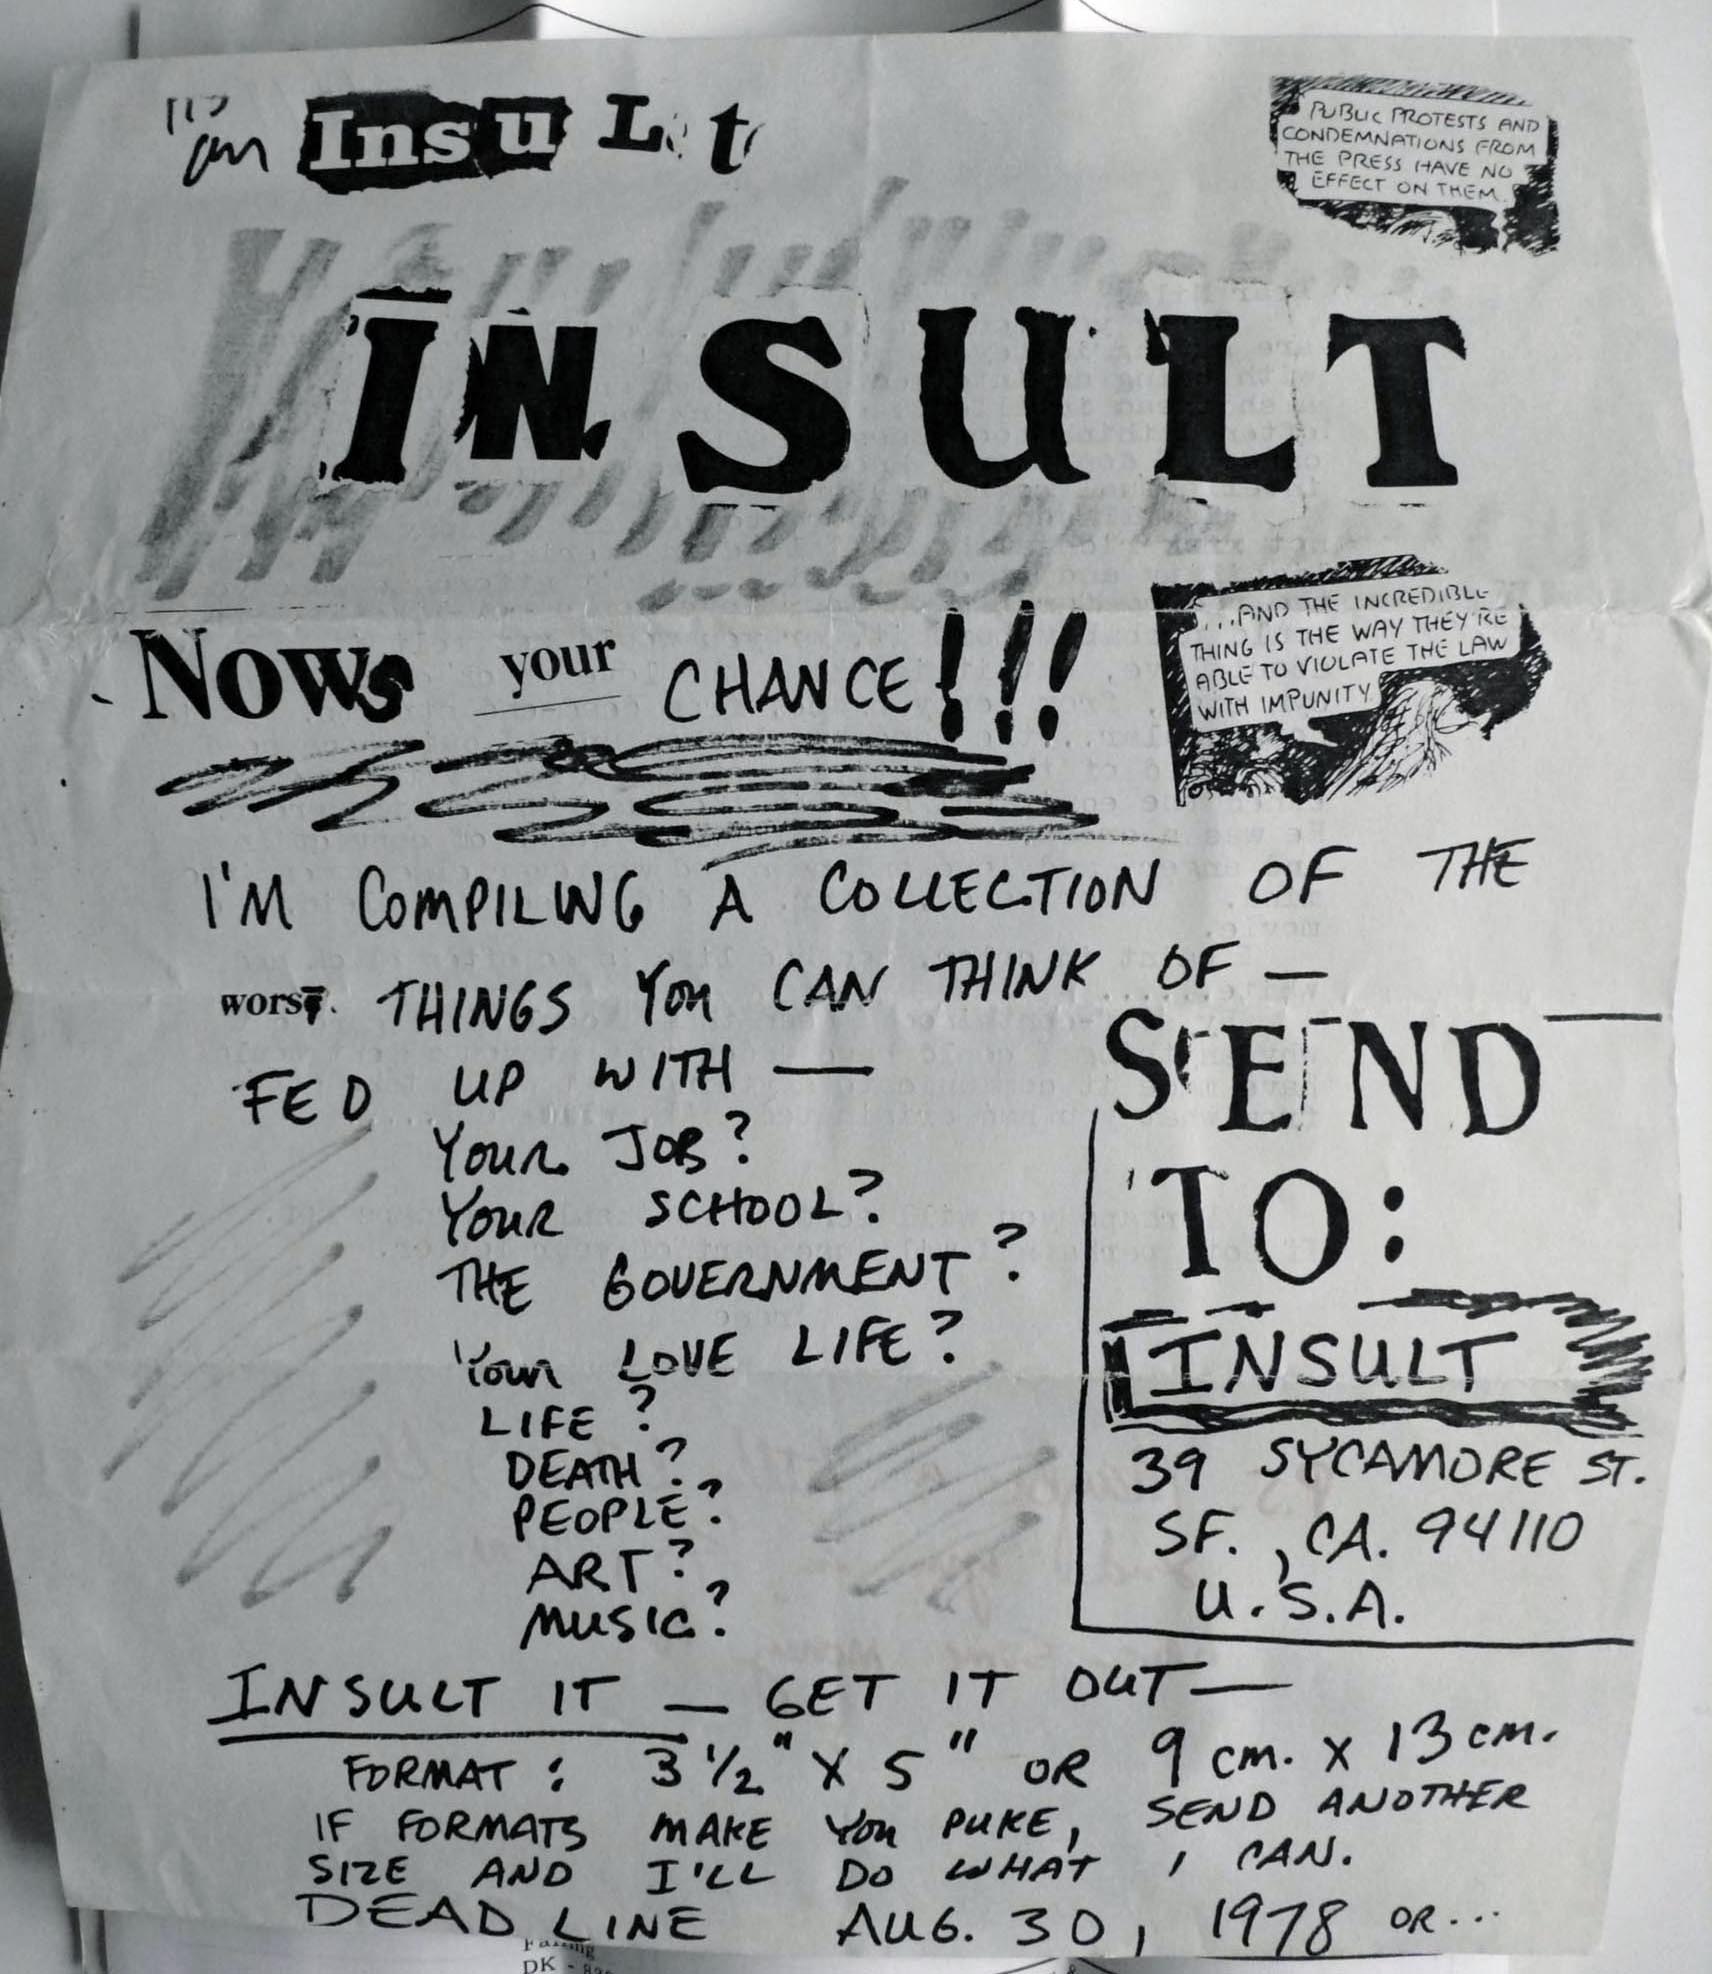 it's
an InsuLt
PUBLIC PROTESTS AND
CONDEMNATIONS FROM
THE PRESS HAVE NO
EFFECT ON THEM.
INSULT
Nows your CHANCE!!!
...AND THE INCREDIBLE
THING IS THE WAY THEY'RE
ABLE TO VIOLATE THE LAW
WITH IMPUNITY.
I'M COMPILING A COLLECTION OF THE
worst. THINGS You CAN THINK OF —
FED UP WITH —
YOUR JOB?
YOUR SCHOOL?
THE GOVERNMENT?
Your LOVE LIFE?
LIFE?
DEATH?
PEOPLE?
ART?
MUSIC?
SEND
TO:
INSULT
39 SYCAMORE ST.
SF., CA. 94110
U.S.A.
INSULT IT — GET IT OUT —
FORMAT: 3 1/2" X 5" OR 9 cm. X 13 cm.
IF FORMATS MAKE You PUKE, SEND ANOTHER
SIZE AND I'LL DO WHAT I CAN.
DEAD LINE AUG. 30, 1978 OR...
DK -